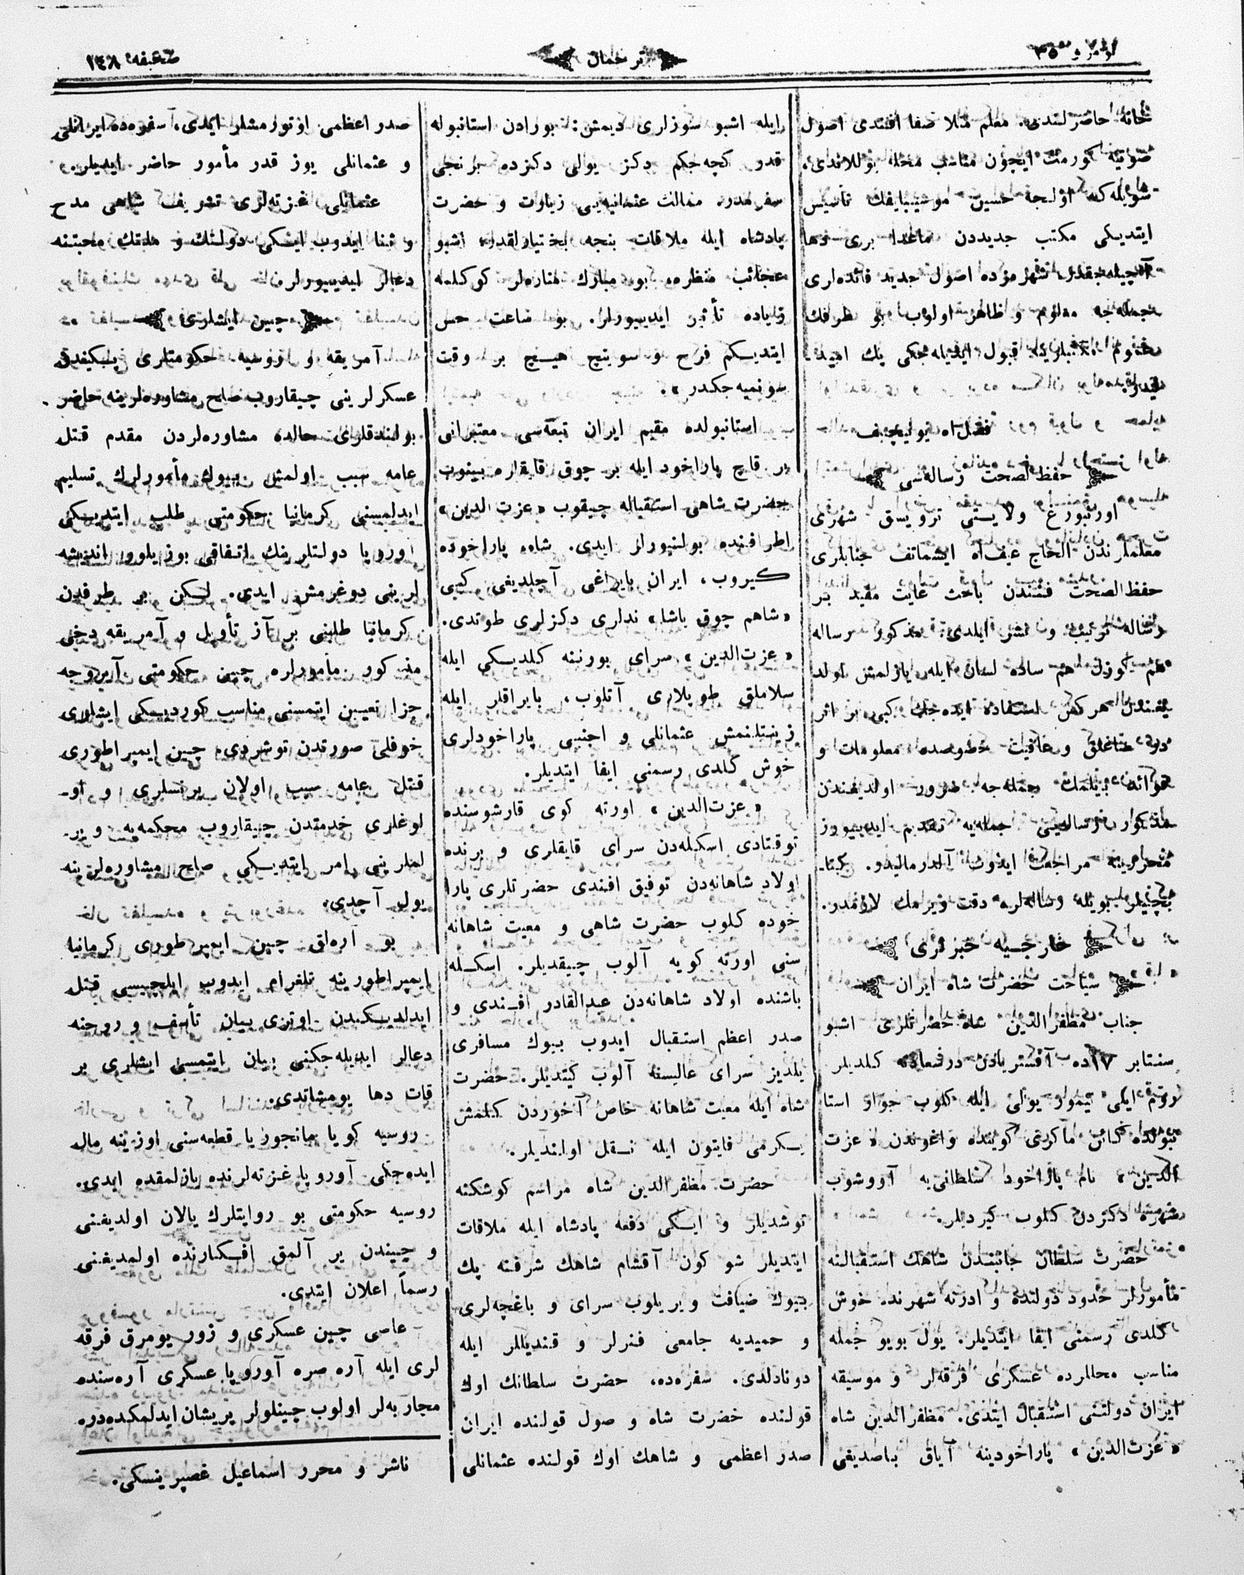 نومرو ۳۵
ترجمان
صحیفه ۱٤۸
خانه حاضرلندی. معلم منلا صفا افندی اصول
صوتیه کورمك ایچون مناسب محله یوللاندی.
شویله‌که اولجه حسین تأسیس
ایتدیکی مکتب جدیددن ماعدا بری دها
آچیله‌جقدر. شهرمزده اصول جدید فائده‌لری
جمله‌جه معلوم و ظاهر اولوب بو طرفك
قبول ایدیله‌جکی پك امید
ایدرز.
حفظ‌الصحت رساله‌سی
اورنبورغ ولایتی ترویسق شهری
معلملرندن الحاج عبدالله ایشماتف جنابلری
حفظ‌الصحت فنندن باحث غایت مفید بر
رساله ترتیب و نشر ایلدی. مذکور رساله
هم کوزل هم ساده لسان ایله یازلمش اولد
یغندن هرکس استفاده ایده‌جك کبی بر اثر
در. و عافیت خصوصنده معلومات و
بیلمك جمله‌جه ضرور اولدیغندن
مذکور رساله‌یی جمله‌یه تقدیم ایدییورز
محررینه مراجعت ایدوب آلدرمالیدر. کتا
بچیلر بویله رساله‌لره دقت ویرمك لازمدر.
خارجیه خبرلری
سیاحت حضرت شاه ایران
جناب مظفرالدین شاه حضرتلری اشبو
سنتابر ۱۷ده آفستریادن درسعادته کلدیلر
روم ایلی تیمور یولی ایله کلوب جوار استا
نبولده کائن ماکری کوینده واغوندن « عزت
الدین » نام پاراخود سلطانی‌یه آووشوب
شهره دکزدن کلوب کیردیلر.
حضرت سلطان جانبندن شاهك استقبالنه
مأمورلر حدود دولتده و ادرنه شهرنده خوش
کلدی رسمنی ایفا ایتدیلر. یول بویو جمله
مناسب محللرده عسکری فرقه‌لر و موسیقه
ایران دولتنی استقبال ایتدی. مظفرالدین شاه
« عزت‌الدین » پاراخودینه آیاق باصدیغی
ایله اشبو سوزلری دیمش: بورادن استانبوله
قدر کچه‌جکم دکز یولی دکزده برنجی
سفرمدر. ممالك عثمانیه‌یی زیارات و حضرت
پادشاه ایله ملاقات بنجه بختیارلقدر. اشبو
عجائب منظره، بو مبارك مناره‌لر کوکلمه
زیاده تأثیر ایدییورلر. بو ساعت حس
ایتدیکم فرح و سوینچ هیچ بر وقت
سونمیه‌جکدر ».
استانبولده مقیم ایران تبعه‌سی معتبرانی
بر قاچ پاراخود ایله بر چوق قایقلره بینوب
حضرت شاهی استقباله چیقوب « عزت الدین »
اطرافنده بولنیورلر ایدی. شاه، پاراخوده
کیروب، ایران بایراغی آچلدیغی کبی
« شاهم چوق یاشا » ندالری دکزلری طوتدی.
« عزت‌الدین » سرای بورنینه کلدیکی ایله
سلاملق طوپلاری آتلوب، بایراقلر ایله
زینتلنمش عثمانلی و اجنبی پاراخودلری
خوش کلدی رسمنی ایفا ایتدیلر.
« عزت‌الدین » اورته کوی قارشوسنده
توقتادی اسکله‌دن سرای قایقلری و برنده
اولاد شاهانه‌دن توفیق افندی حضرتلری پارا
خوده کلوب حضرت شاهی و معیت شاهانه
سنی اورته کویه آلوب چیقدیلر. اسکله
باشنده اولاد شاهانه‌دن عبدالقادر افندی و
صدر اعظم استقبال ایدوب بیوك مسافری
یلدیز سرای عالیسنه آلوب کیتدیلر. حضرت
شاه ایله معیت شاهانه خاص آخوردن کلمش
یکرمی فایتون ایله نقل اولندیلر.
حضرت مظفرالدین شاه مراسم کوشکنه
توشدیلر و ایکی دفعه پادشاه ایله ملاقات
ایتدیلر شو کون آقشام شاهك شرفنه پك
بیوك ضیافت ویریلوب سرای و باغچه‌لری
و حمیدیه جامعی فنرلر و قندیللر ایله
دونادلدی. سفره‌ده، حضرت سلطانك اوك
قولنده حضرت شاه و صول قولنده ایران
صدر اعظمی و شاهك اوك قولنده عثمانلی
صدر اعظمی اوتورمشلر ایدی. سفره‌ده ایرانلی
و عثمانلی یوز قدر مأمور حاضر ایدیلر.
عثمانلی غزته‌لری تشریف شاهی مدح
و ثنا ایدوب ایکی دولتك و ملتك محبتنه
دعالر ایدییورلر.
چین ایشلری
آمریقه و روسیه حکومتلری پکیندن
عسکرلرینی چیقاروب صلح مشاوره‌لرینه حاضر
بولندقلری حالده مشاوره‌لردن مقدم قتل
عامه سبب اولمش بیوك مأمورلرك تسلیم
ایدلمسنی کرمانیا حکومتی طلب ایتدیکی
اوروپا دولتلرینك اتفاقی بوزیلور اندیشه
لرینی دوغرمش ایدی. لکن بر طرفدن
کرمانیا طلبنی بر آز تأویل و آمریقه دخی
مذکور مأمورلره چین حکومتی آیروجه
جزا تعیین ایتمسنی مناسب کوردیکی ایشلری
خوفلی صورتدن توشردی. چین ایمپراطوری
قتل عامه سبب اولان پرنسلری و او
لوغلری خدمتدن چیقاروب محکمه‌یه ویر
لملرینی امر ایتدیکی صلح مشاوره‌لرینه
یول آچدی.
بو آره‌لق چین ایمپرطوری کرمانیا
ایمپراطورینه تلغرام ایدوب ایلچیسی قتل
ایدلدیکندن اوتری بیان تأسف و روحنه
دعالر ایدیله‌جکنی بیان ایتمسی ایشلری بر
قات دها یومشاتدی.
روسیه کویا مانجوریا قطعه‌سنی اوزینه مال
ایده‌جکی آوروپا غزته‌لرنده یازلمقده ایدی.
روسیه حکومتی بو روایتلرك یالان اولدیغنی
و چیندن یر آلمق افکارنده اولمدیغنی
رسماً اعلان ایتدی.
عاصی چین عسکری و زور یومرق فرقه
لری ایله آره صره آوروپا عسکری آره‌سنده
محاربه‌لر اولوب چینلولر پریشان ایدلمکده‌در.
ناشر و محرر اسماعیل غصپرینسکی.